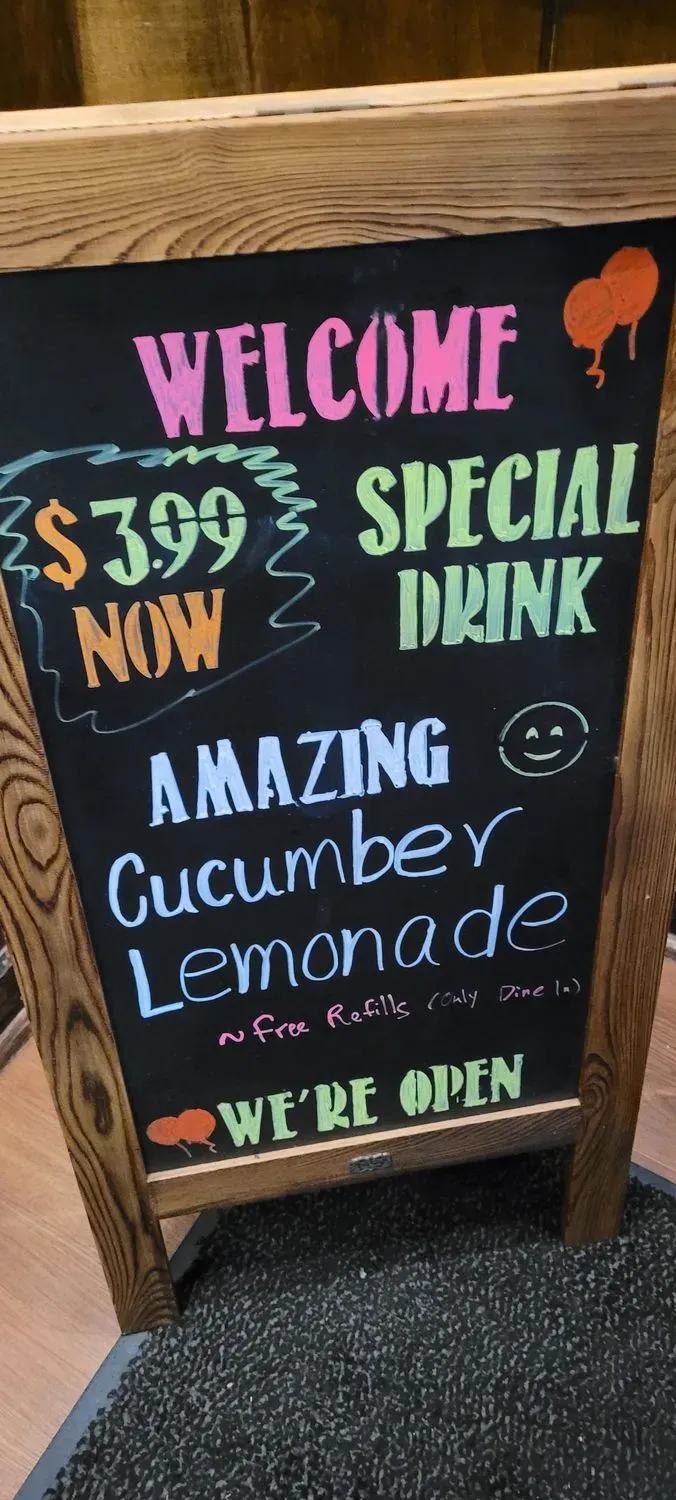 WELCOME
$3.99
NOW
SPECIAL
DRINK
AMAZING
Cucumber
Lemonade
~ Free Refills (Only Dine In)
WE'RE OPEN